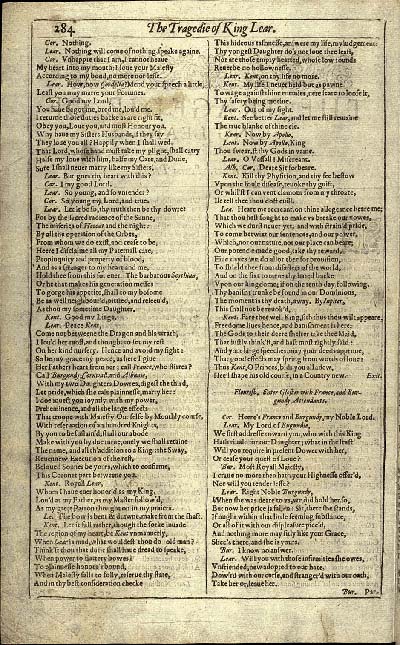 284 The Tragedie of King Lear.
Cor. Nothing.
Lear. Nothing will come of nothing, speake againe.
Cor. Vnhappie that I am, I cannot heaue
My heart into my mouth: I loue your Maiesty
According to my bond, no more nor lesse.
Lear. How, how Cordelia? Mend your speech a little,
Least you may marre your Fortunes.
Cor. Good my Lord,
You haue begot me, bred me, lou'd me.
I returne those duties backe as are right fit,
Obey you, Loue you, and most Honour you.
Why haue my Sisters Husbands, if they say
They loue you all? Happily when I shall wed,
That Lord, whose hand must take my plight, shall carry
Halfe my loue with him, halfe my Care, and Dutie,
Sure I shall neuer marry like my Sisters.
Lear. But goes thy heart with this?
Cor. I my good Lord.
Lear. So young, and so vntender?
Cor. So young my Lord, and true.
Lear. Let it be so, thy truth then be thy dowre:
For by the sacred radience of the Sunne,
The misteries of Heccat and the night:
By all the operation of the Orbes,
From whom we do exist, and cease to be,
Heere I disclaime all my Paternall care,
Propinquity and property of blood,
And as a stranger to my heart and me,
Hold thee from this for euer. The barbarous Scythian,
Or he that makes his generation messes
To gorge his appetite, shall to my bosome
Be as well neighbour'd, pittied, and releeu'd,
As thou my sometime Daughter.
Kent. Good my Liege.
Lear. Peace Kent,
Come not betweene the Dragon and his wrath,
I lou'd her most, and thought to set my rest
On her kind nursery. Hence and avoid my sight:
So be my graue my peace, as here I giue
Her Fathers heart from her; call France, who stirres?
Call Burgundy, Cornwall, and Albanie,
With my two Daughters Dowres, digest the third,
Let pride, which she cals plainnesse, marry her:
I doe inuest you ioyntly with my power,
Preheminence, and all the large effects
That troope with Maiesty. Our selfe by Monthly course,
With reseruation of an hundred Knights,
By you to be sustain'd, shall our abode
Make with you by due turne, onely we shall retaine
The name, and all th'addition to a King: the Sway,
Reuennew, Execution of the rest,
Beloued Sonnes be yours, which to confirme,
This Coronet part betweene you.
Kent. Royall Lear,
Whom I haue euer honor'd as my King,
Lou'd as my Father, as my Master follow'd,
As my great Patron thought on in my praiers.
Le. The bow is bent & drawne, make from the shaft.
Kent. Let it fall rather, though the forke inuade
The region of my heart, be Kent vnmannerly,
When Lear is mad, what wouldest thou do old man?
Think'st thou that dutie shall haue dread to speake,
When power to flattery bowes?
To plainnesse honour's bound,
When Maiesty falls to folly, reserue thy state,
And in thy best consideration checke
This hideous rashnesse, answere my life, my iudgement:
Thy yongest Daughter do's not loue thee least,
Nor are those empty hearted, whose low sounds
Reuerbe no hollownesse.
Lear. Kent, on thy life no more.
Kent. My life I neuer held but as pawne
To wage against thine enemies, nere feare to loose it,
Thy safety being motiue.
Lear. Out of my sight.
Kent. See better Lear, and let me still remaine
The true blanke of thine eie.
Kear. Now by Apollo,
Lent. Now by Apollo, King
Thou swear.st thy Gods in vaine.
Lear. O Vassall! Miscreant.
Alb. Cor. Deare Sir forbeare.
Kent. Kill thy Physition, and thy fee bestow
Vpon the foule disease, reuoke thy guift,
Or whil'st I can vent clamour from my throate,
Ile tell thee thou dost euill.
Lea. Heare me recreant, on thine allegeance heare me;
That thou hast sought to make vs breake our vowes,
Which we durst neuer yet; and with strain'd pride,
To come betwixt our sentences, and our power,
Which, nor our nature, nor our place can beare;
Our potencie made good, take thy reward.
Fiue dayes we do allot thee for prouision,
To shield thee from disasters of the world,
And on the sixt to turne thy hated backe
Vpon our kingdome; if on the tenth day following,
Thy banisht trunke be found in our Dominions,
The moment is thy death, away. By Iupiter,
This shall not be reuok'd,
Kent. Fare thee well King, sith thus thou wilt appeare,
Freedome liues hence, and banishment is here;
The Gods to their deere shelter take thee Maid,
That iustly think'st, and hast most rightly said:
And your large speeches, may your deeds approue,
That good effects may spring from words of loue:
Thus Kent, O Princes, bids you all adew,
Hee'l shape his old course, in a Country new. Exit.
Flourish. Enter Gloster with France, and Bur-
gundy, Attendants.
Cor. Heere's France and Burgundy, my Noble Lord.
Lear. My Lord of Bugundie,
We first addresse toward you, who with this King
Hath riuald for our Daughter; what in the least
Will you require in present Dower with her,
Or cease your quest of Loue?
Bur. Most Royall Maiesty,
I craue no more then hath your Highnesse offer'd,
Nor will you tender lesse?
Lear. Right Noble Burgundy,
When she was deare to vs, we did hold her so,
But now her price is fallen: Sir, there she stands,
If ought within that little seeming substance,
Or all of it with our displeasure piec'd,
And nothing more may fitly like your Grace,
Shee's there, and she is yours.
Bur. I know no answer.
Lear. Will you with those infirmities she owes,
Vnfriended, new adopted to our hate,
Dow'rd with our curse, and stranger'd with our oath,
Take her or, leaue her.
Bur. Par-